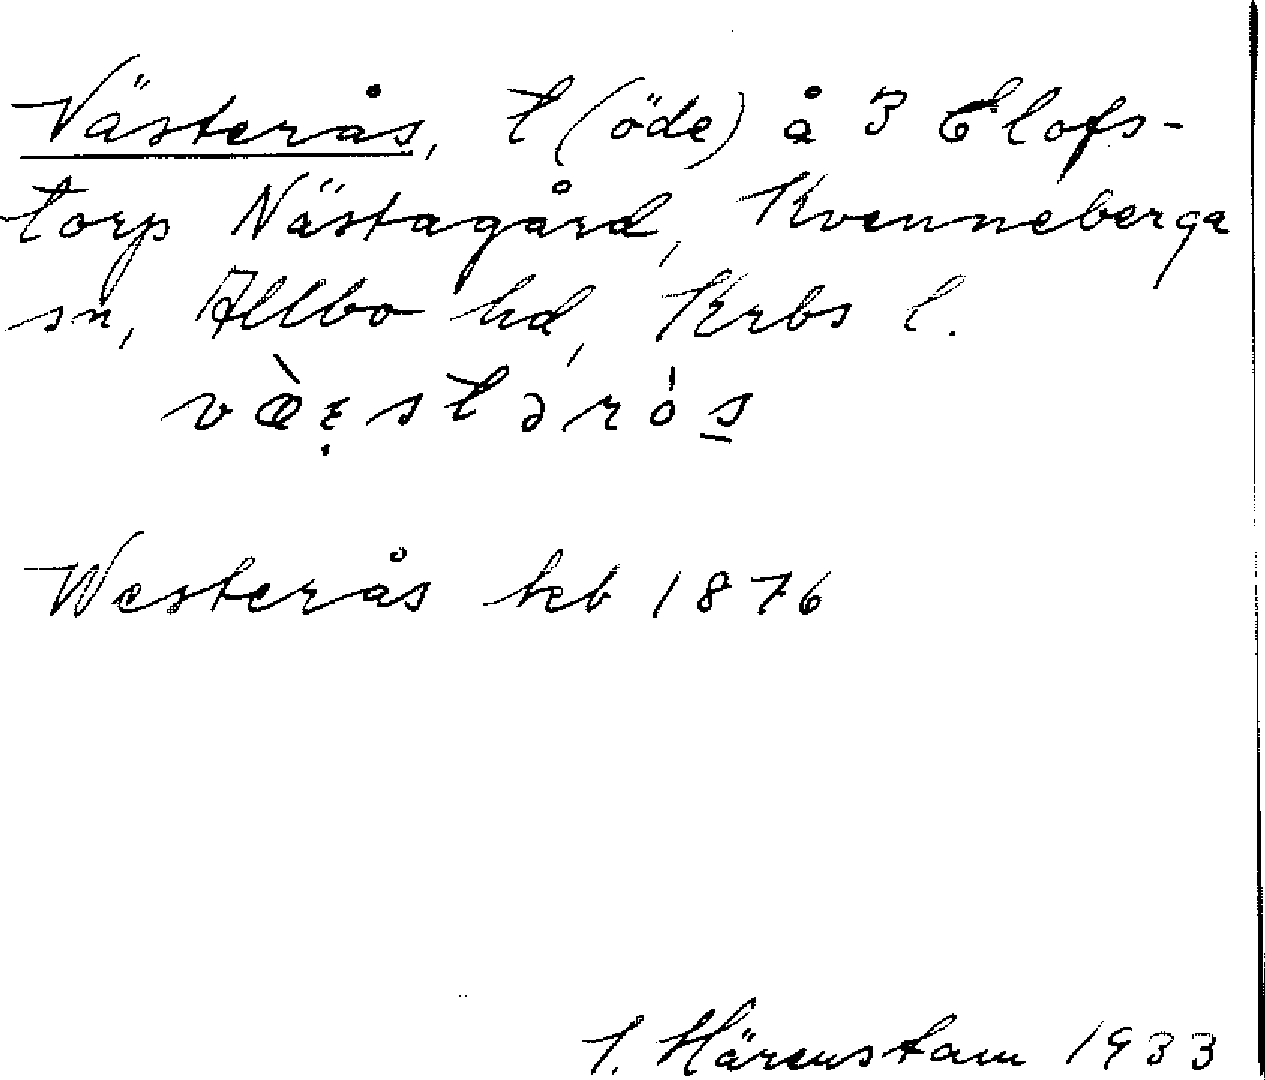 Västerås, t (öde) å 3 Elofs-
torp Nästagård, Kvenneberga
sn, Allbo hd, Krbs l.
væ̀ɛ̣stərós̠
Westerås hcb 1876
Härenstam 1933